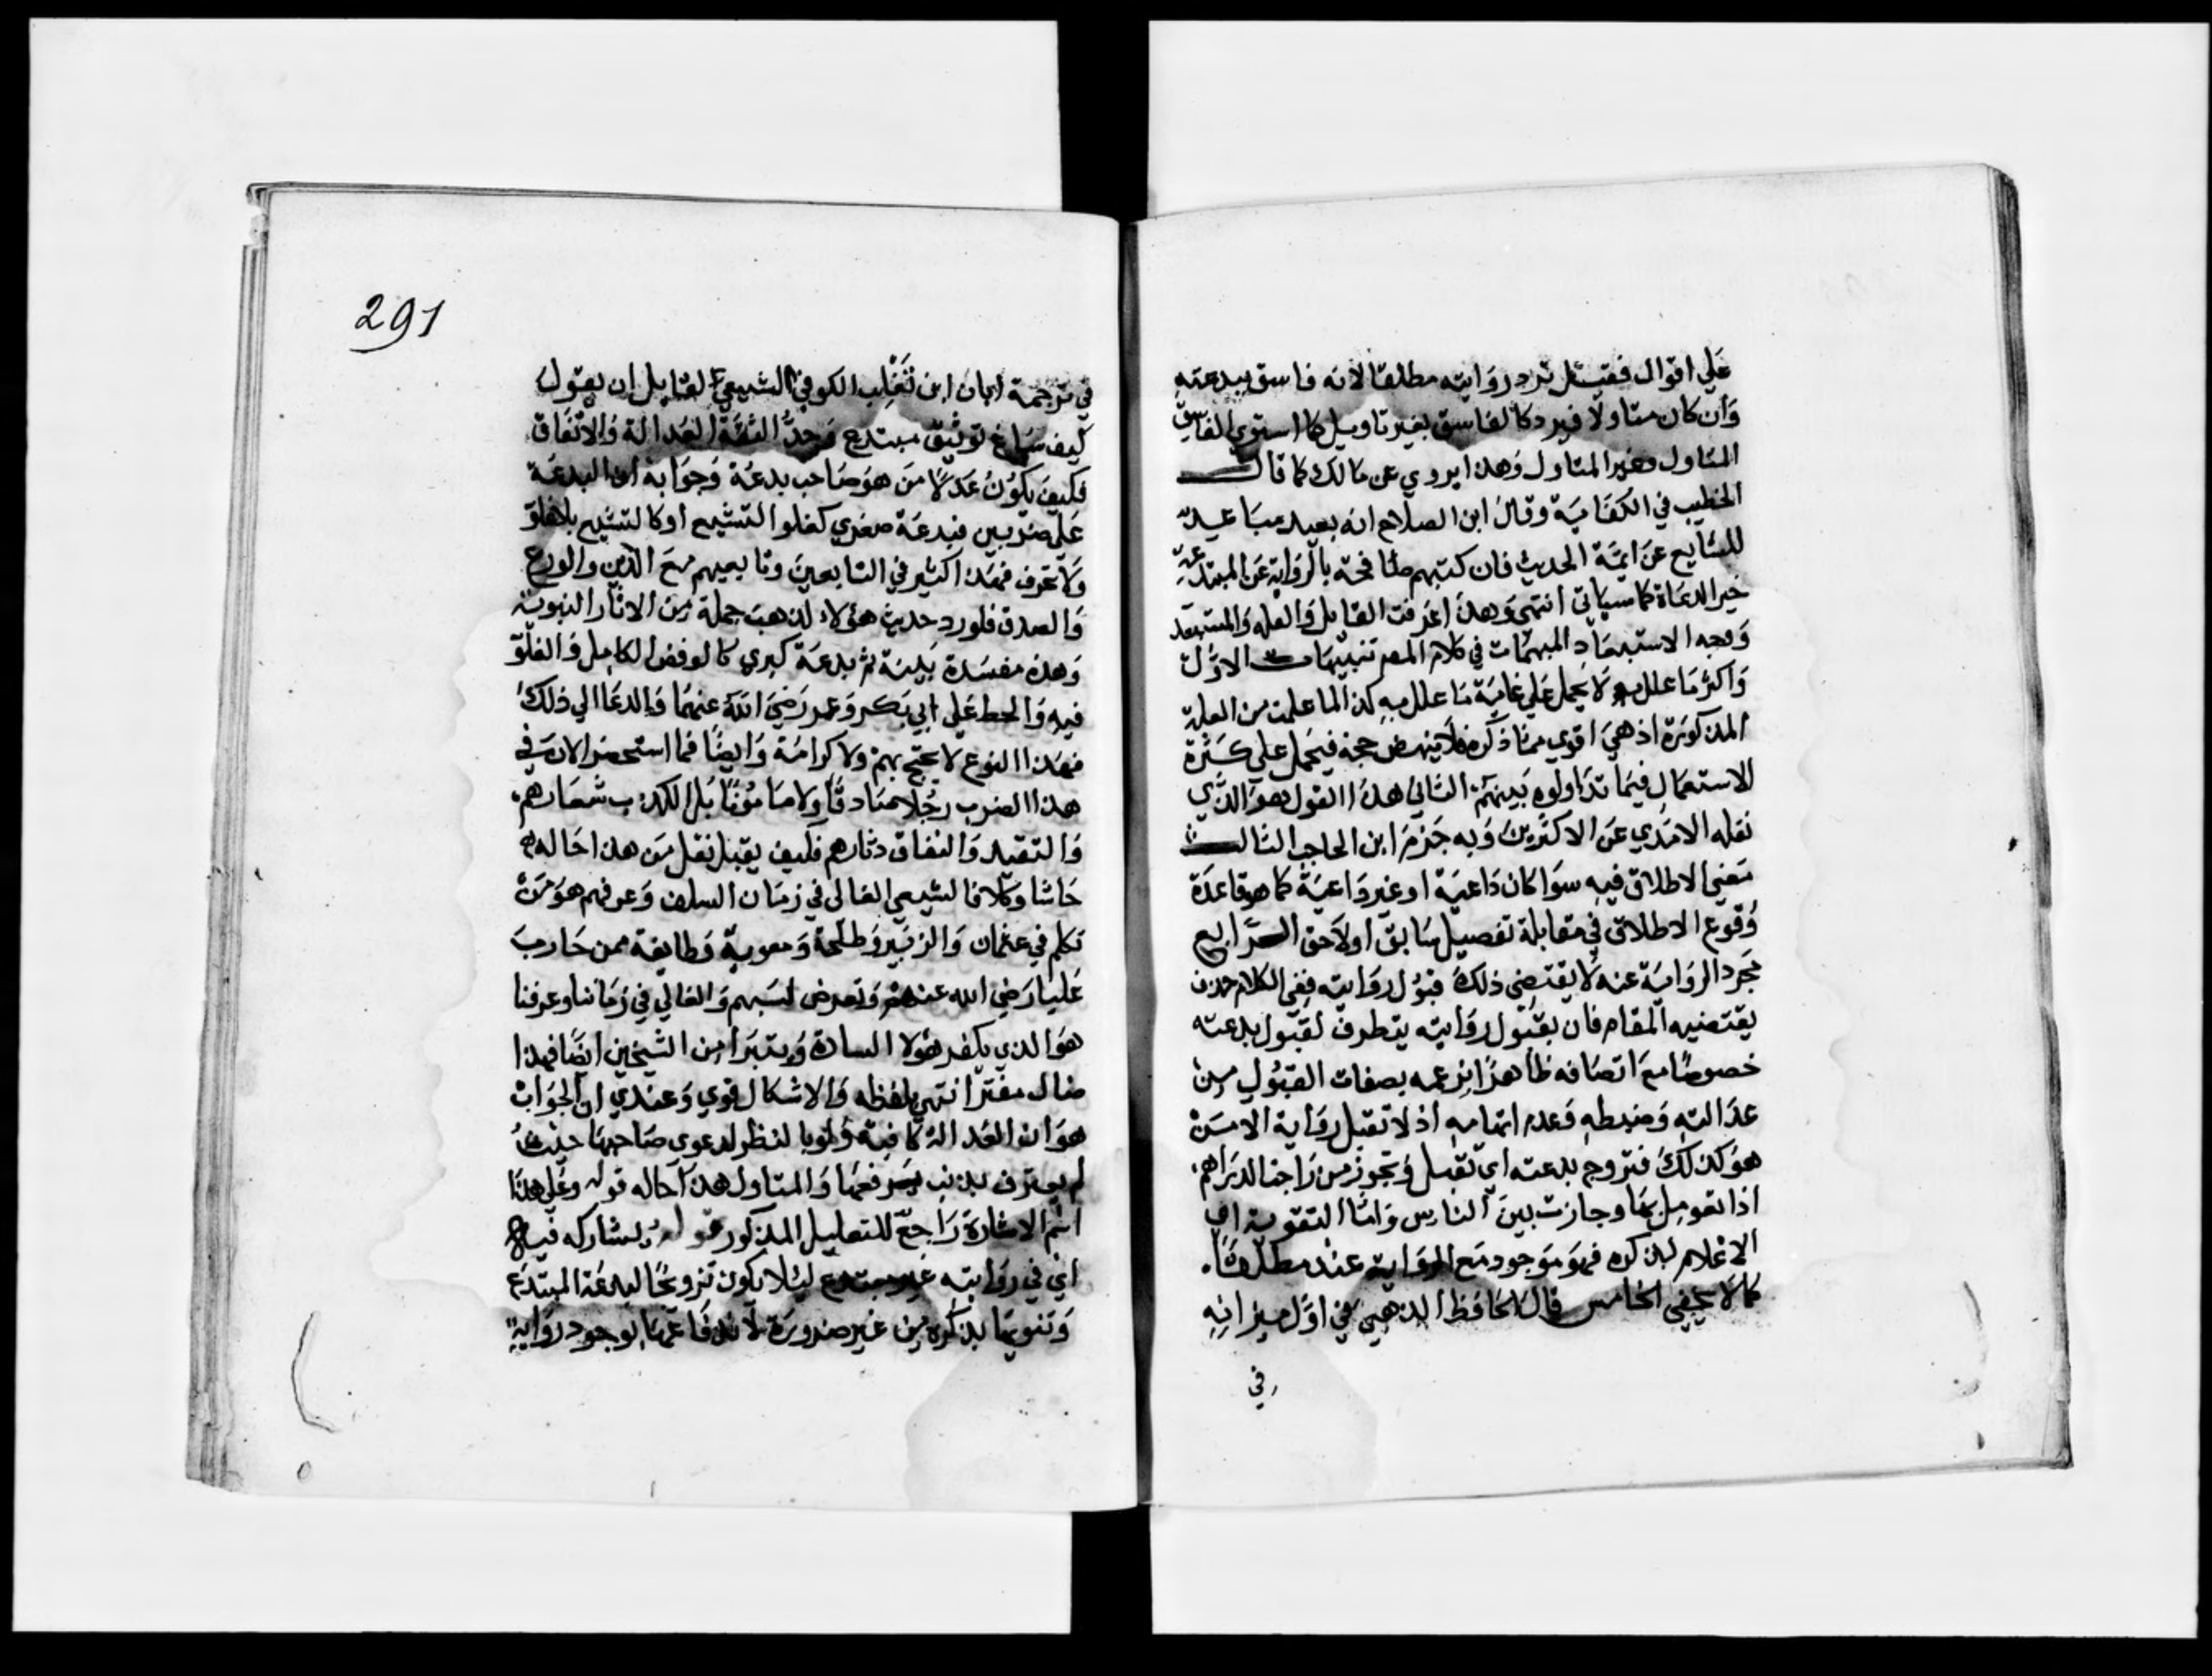 علي اقوال فقيل ترد روايته مطلقا لانه فاسق ببدعته
وان كان متاولا فيرد كالفاسق بغير تاويل كما استوي الفاسق
المتاول وغير المتاول وهذا يروي عن مالك كما قال
الخطيب في الكفاية وقال ابن الصلاح انه بعيد مباعد
للشايع عن ايمة الحديث فان كتبهم طافحة بالرواية عن المبتدعة
غير الدعاة كما سياتي انتهي وهذا اعرفت القايل والعله والمستبعد
ووجه الاستبعاد المبهمات في كلام المصر تنبيهات الاول
واكثر ما علل به لا يحمل علي غاية ما علل به كذا لما علمت من العلة
المذكورة اذ هي اقوي مما ذكره فلا ينهض حجة فيحمل علي كثرة
الاستعمال فيما تداولوه بينهم الثاني هذا القول هو الذي
نقله الامدي عن الاكثرين وبه جزم ابن الحاجب الثالث
معني الاطلاق فيه سوا كان داعية او غير داعية كما هو قاعدة
وقوع الاطلاق في مقابلة تفصيل سابق او لاحق الرابع
مجرد الرواية عنه لا يقتضي ذلك قبول روايته ففي الكلام حذف
يقتضيه المقام فان بقبول روايته يتطرف لقبول بدعته
خصوصا مع اتصافه ظاهرا بزعمه بصفات القبول من
عدالته وضبطه وعدم اتهامه اذ لا تقبل رواية الا ممن
هو كذلك فتروج بدعته اي تقبل وتجوز من راجت الدراهم
اذا تعومل بها وجازت بين الناس واما التقوية اي
الاعلام بذكره فهو موجود مع الرواية عنه مطلقا
كما لا يخفي الخامس قال الحافظ الذهبي في اول ميزانه
في
291
في ترجمة ابان ابن تغلب الكوفي الشيعي لقايل ان يقول
كيف ساغ توثيق مبتدع وحد الثقة العدالة والاتفاق
فكيف يكون عدلا من هو صاحب بدعة وجوابه ان البدعة
علي ضربين فبدعة صغري كغلو التشيع او كالتشيع بلا غلو
ولا تحرف فهذا كثير في التابعين وتابعيهم مع الدين والورع
والصدق فلو رد حديث هؤلاء لذهب جملة من الاثار النبوية
وهذه مفسدة بينة ثم بدعة كبري كالرفض الكامل والغلو
فيه والحط علي ابي بكر وعمر رضي الله عنهما والدعا الي ذلك
فهذا النوع لا يحتج بهم ولا كرامة وايضا فما استحضر الان في
هذا الضرب رجلا صادقا ولا مامونا بل الكذب شعارهم
والتقيه والنفاق دثارهم فكيف يقبل نقل من هذا حاله
حاشا وكلا فالشيعي الغالي في زمان السلف وعرفهم هو من
تكلم في عثمان والزبير وطلحة ومعوية وطايفة ممن حارب
عليا رضي الله عنهم وتعرض لسبهم والغالي في زماننا وعرفنا
هو الذي يكفر هؤلا السادة ويتبرا من الشيخين ايضا فهذا
ضال مفتر انتهي بلفظه والاشكال قوي وعندي ان الجواب
هو ان العدالة كافية ولو بالنظر لدعوي صاحبها حيث
لم يعترف بذنب يرفعها والمتاول هذا حاله قوله وعلي هذا
اسم الاشارة راجع للتعليل المذكور قوله يشاركه فيه
اي في روايته غير مبتدع ليلا يكون ترويجا لبدعة المبتدع
وتنويها بذكره من غير ضرورة لاندفاعها بوجود رواية